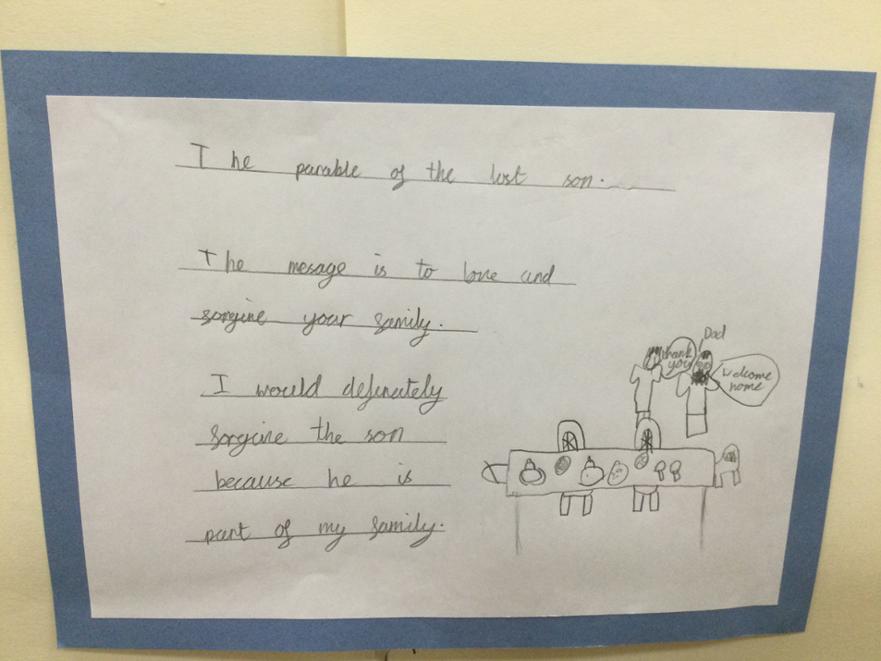 The parable of the lost son.
The mesage is to love and
forgive your family.
I would definately
forgive the son
because he is
part of my family.
Dad
Thank
you
Welcome
home